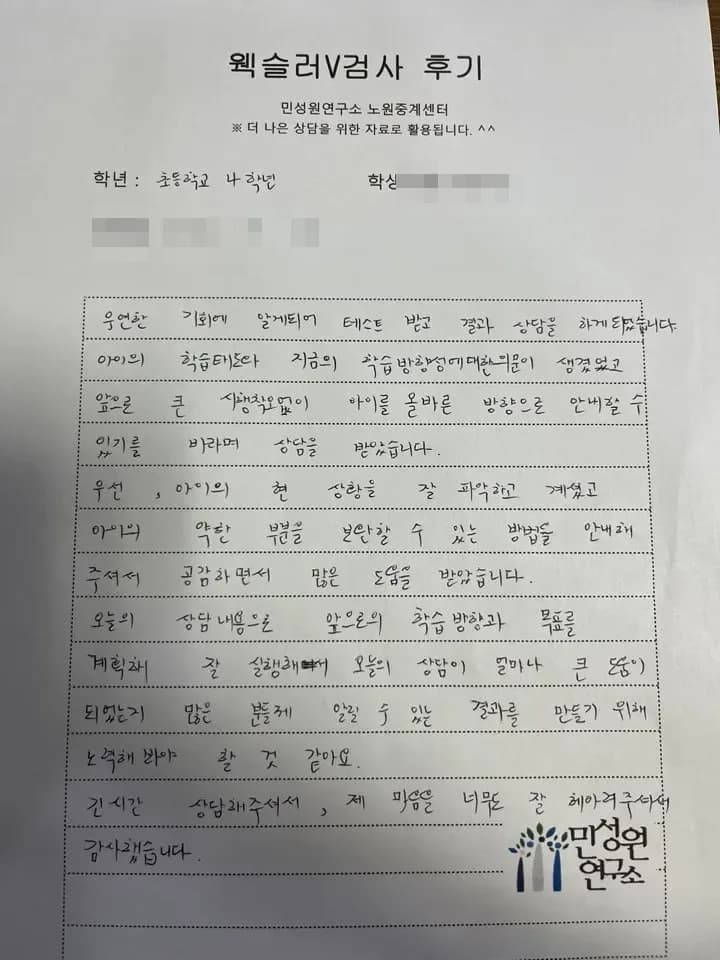 웩슬러V검사 후기
민성원연구소 노원중계센터
※ 더 나은 상담을 위한 자료로 활용됩니다. ^^
학년 : 초등학교 4 학년 학생
우연한 기회에 알게되어 테스트 받고 결과 상담을 하게되었습니다.
아이의 학습태도나 지금의 학습방향성에대한의문이 생겼었고
앞으로 큰 시행착오없이 아이를 올바른 방향으로 안내할 수
있기를 바라며 상담을 받았습니다.
우선, 아이의 현 상황을 잘 파악하고 계셨고
아이의 약한 부분을 보완할 수 있는 방법들 안내해
주셔서 공감하면서 많은 도움을 받았습니다.
오늘의 상담내용으로 앞으로의 학습방향과 목표를
계획해 잘 실행해서 오늘의 상담이 얼마나 큰 도움이
되었는지 많은 분들께 알릴 수 있는 결과를 만들기 위해
노력해봐야 할 것 같아요.
긴시간 상담해주셔서, 제 마음을 너무도 잘 헤아려주셔서
감사했습니다.
민성원
연구소